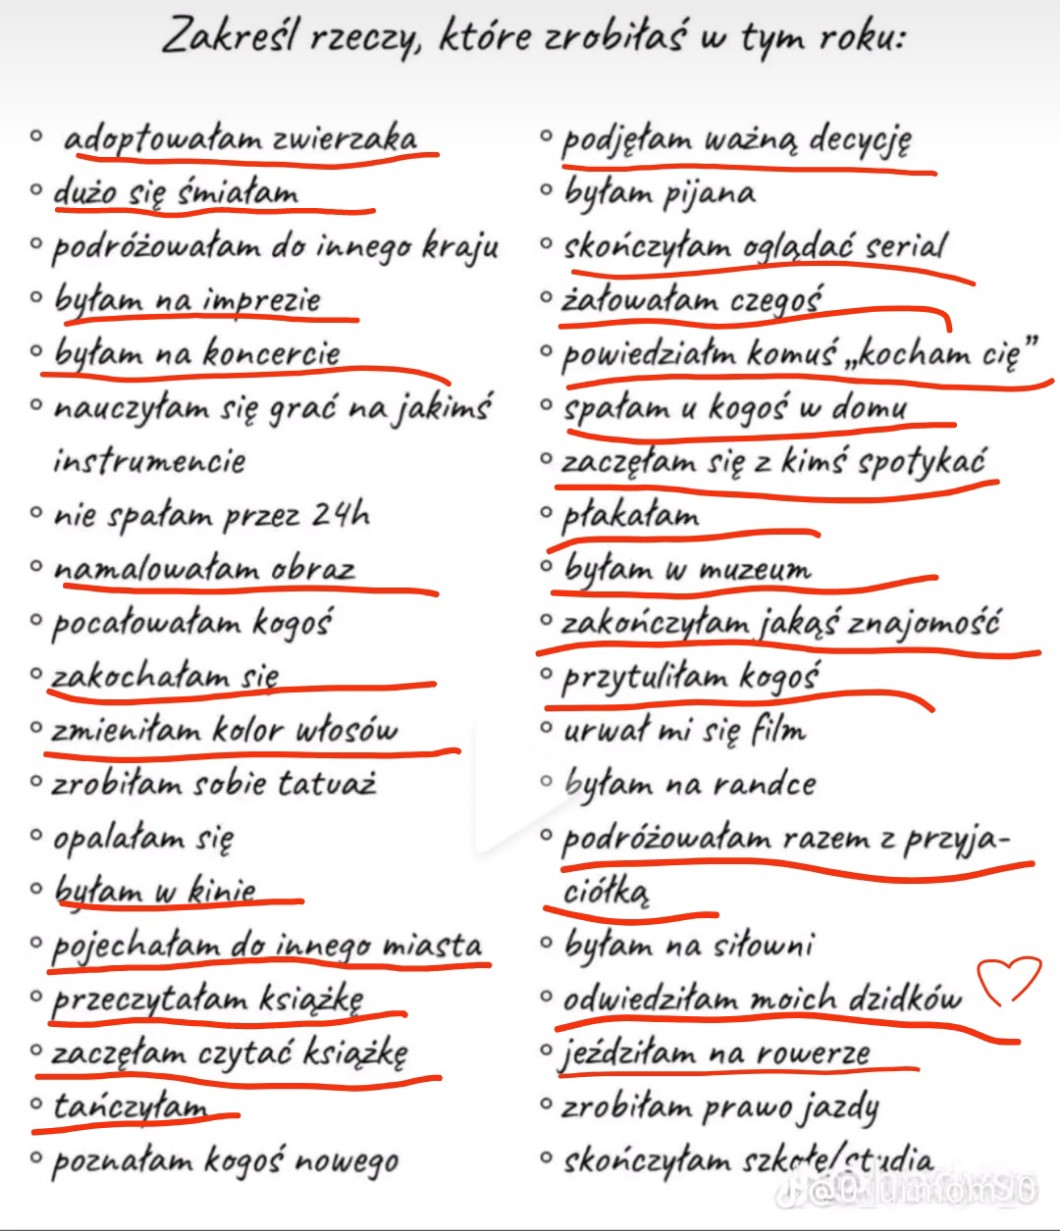 Zakreśl rzeczy, które zrobiłaś w tym roku:
adoptowałam zwierzaka
dużo się śmiałam
podróżowałam do innego kraju
byłam na imprezie
byłam na koncercie
nauczyłam się grać na jakimś
instrumencie
nie spałam przez 24h
namalowałam obraz
pocałowałam kogoś
zakochałam się
zmieniłam kolor włosów
zrobiłam sobie tatuaż
opalałam się
byłam w kinie
pojechałam do innego miasta
przeczytałam książkę
zaczęłam czytać książkę
tańczyłam
poznałam kogoś nowego
podjęłam ważną decycję
byłam pijana
skończyłam oglądać serial
żałowałam czegoś
powiedziałm komuś „kocham cię”
spałam u kogoś w domu
zaczęłam się z kimś spotykać
płakałam
byłam w muzeum
zakończyłam jakąś znajomość
przytuliłam kogoś
urwał mi się film
byłam na randce
podróżowałam razem z przyja-
ciółką
byłam na siłowni
odwiedziłam moich dzidków
jeździłam na rowerze
zrobiłam prawo jazdy
skończyłam szkołę/studia